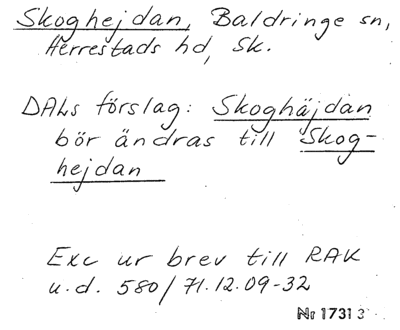 Skoghejdan, Baldringe sn,
Herrestads hd, Sk.
DALs förslag: Skoghäjdan
bör ändras till Skog-
hejdan
Exc ur brev till RAK
u.d. 580/71.12.09-32
Nr 1731 3